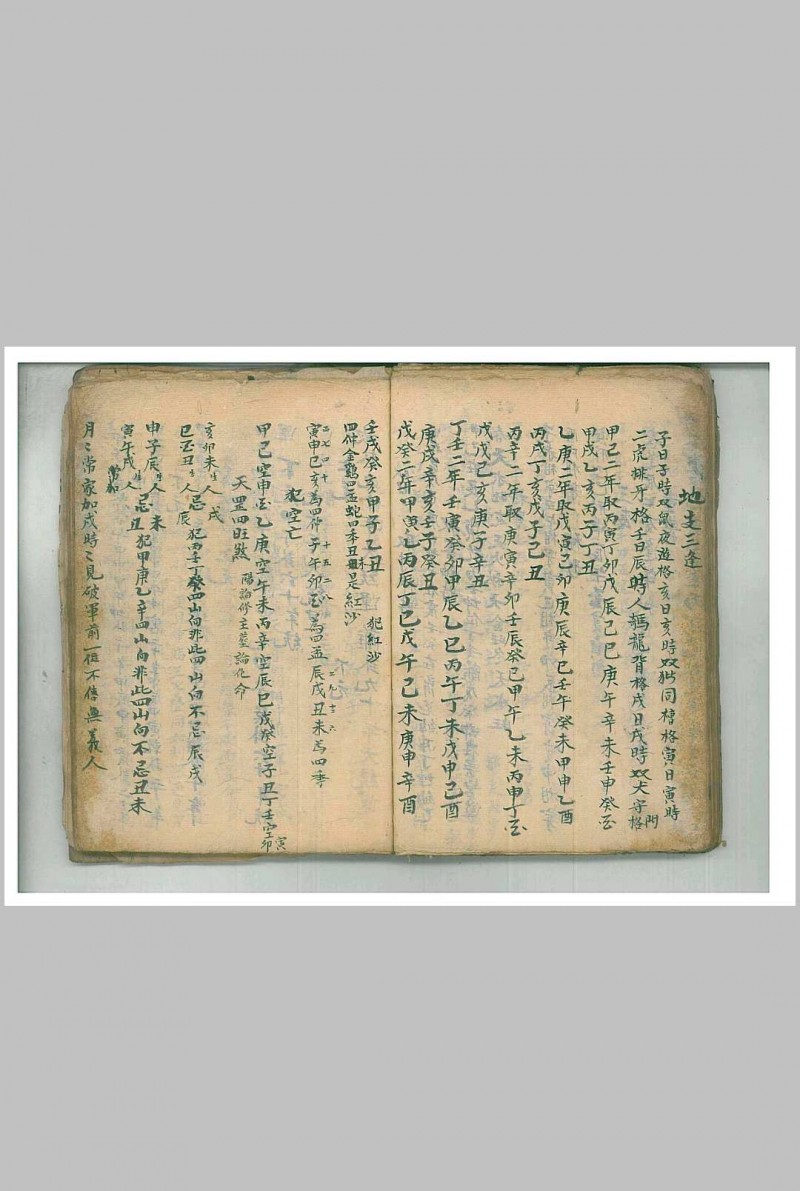 地支三逢
子日子時双鼠夜遊格亥日亥時双猪同槽格寅日寅時
二虎排牙格壬日辰時人騎龍背格戌日戌時双犬守門格
甲己二年取丙寅丁卯戊辰己巳庚午辛未壬申癸酉
甲戌乙亥丙子丁丑
乙庚二年取戊寅己卯庚辰辛巳壬午癸未甲申乙酉
丙戌丁亥戊子己丑
丙辛二年取庚寅辛卯壬辰癸巳甲午乙未丙申丁酉
戊戌己亥庚子辛丑
丁壬二年壬寅癸卯甲辰乙巳丙午丁未戊申己酉
庚戌辛亥壬子癸丑
戊癸二年甲寅乙丙辰丁巳戊午己未庚申辛酉
壬戌癸亥甲子乙丑
犯紅沙
四仲金鷄四孟蛇四季丑未是紅沙
寅申巳亥為四仲子午卯酉為四孟辰戌丑未為四季
犯空亡
甲己空申酉乙庚空午未丙辛空辰巳戊癸空子丑丁壬空寅卯
天罡四旺煞 陽論修主墓論化命
亥卯未生人戌
巳酉丑生人忌辰 犯丙壬丁癸四山向非此四山向不忌辰戌
申子辰生人未
寅午戌生人忌丑 犯甲庚乙辛四山向非此四山向不忌丑未
月々常家加戌時々見破軍前一位不傳無義人